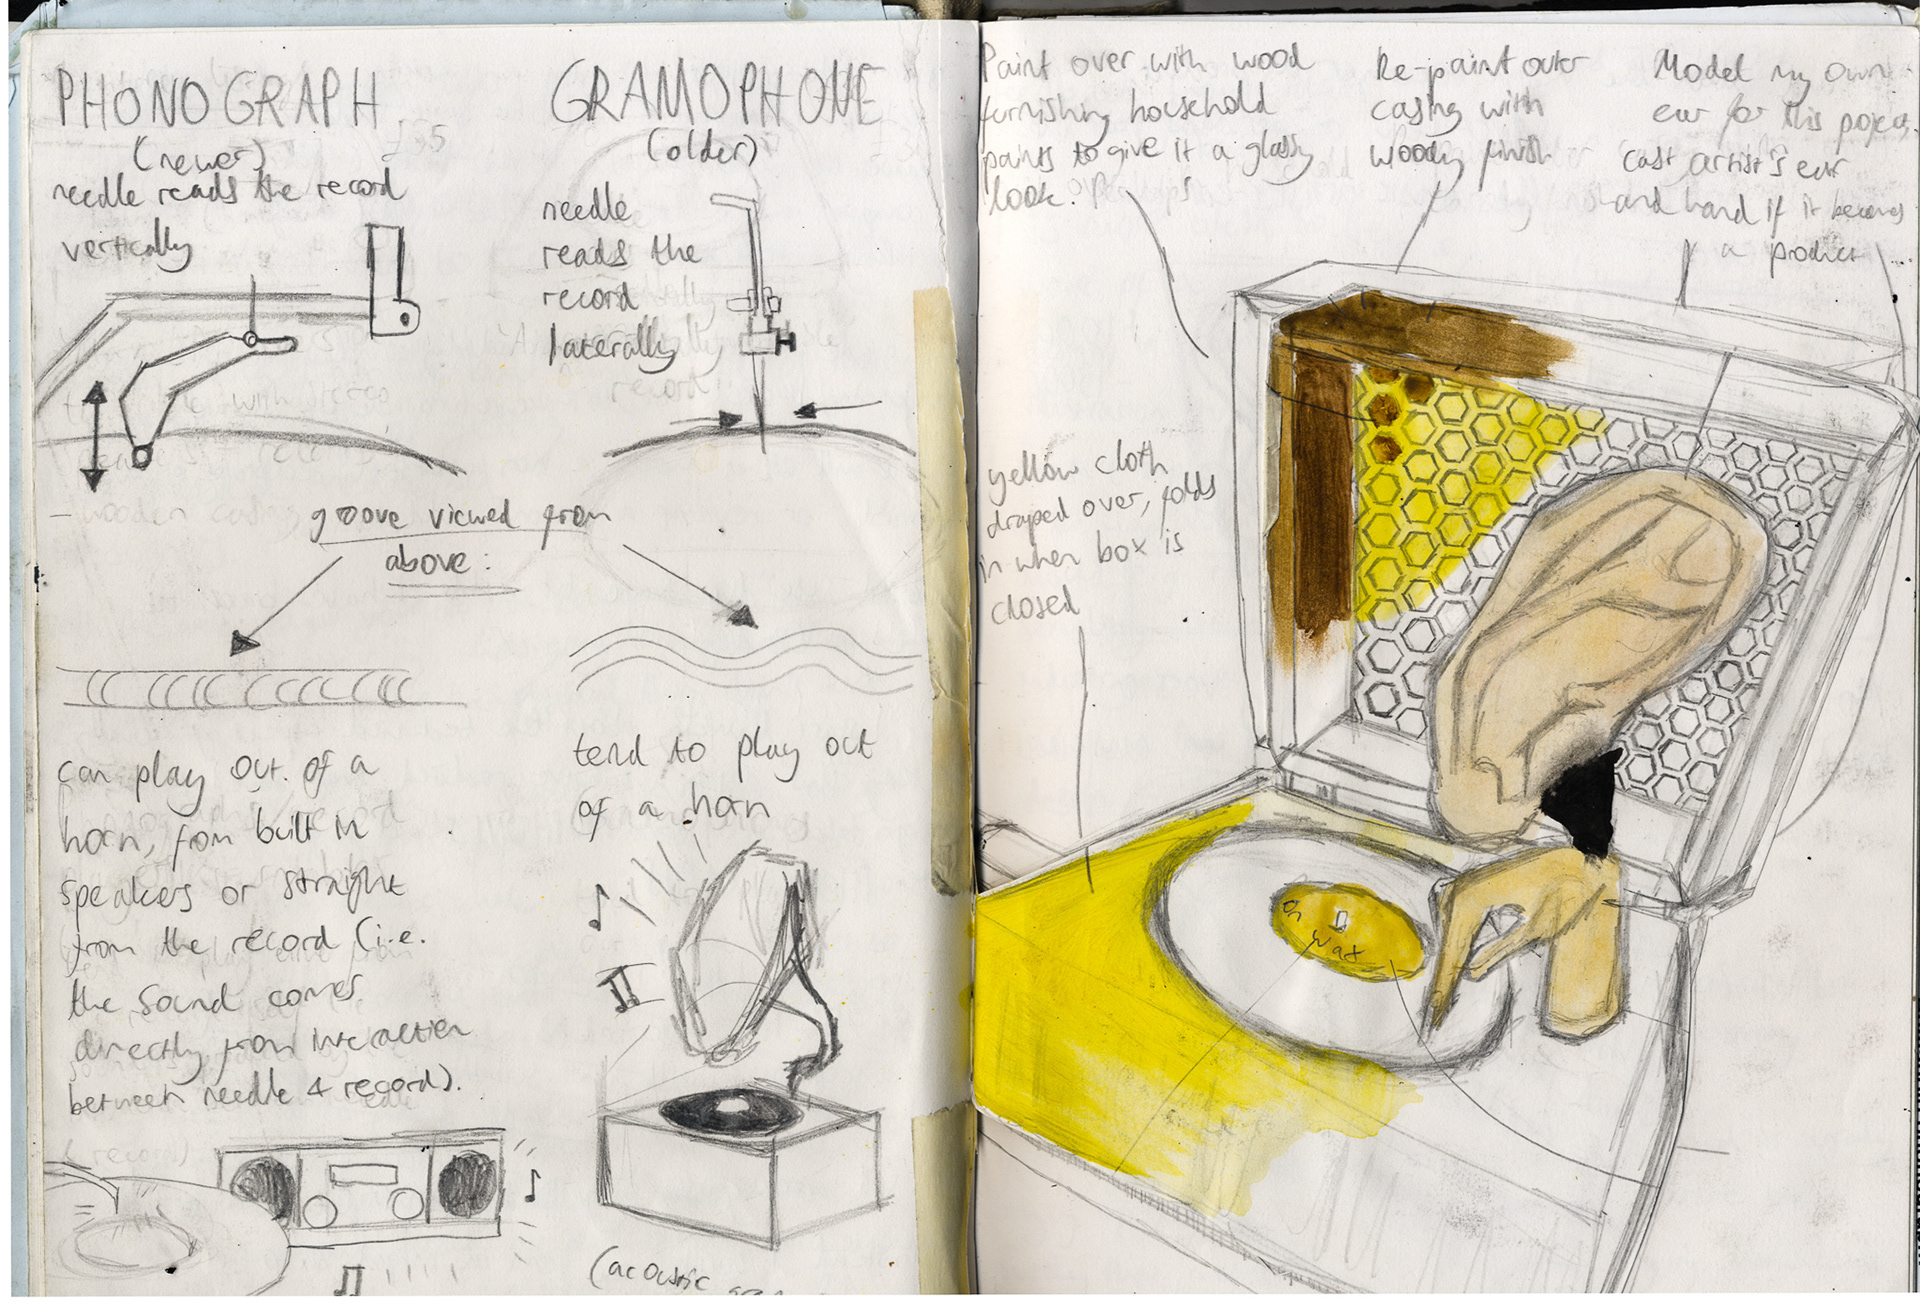 PHONOGRAPH
(newer)
needle reads the record
vertically
GRAMOPHONE
(older)
needle
reads the
record
laterally
groove viewed from
above:
can play out of a
horn, from built in
speakers or straight
from the record (i.e.
the sound comes
directly from interaction
between needle & record).
tend to play out
of a horn
(acoustic
Paint over with wood
furnishing household
paints to give it a glassy
look?
Re-paint outer
casing with
woody finish
Model my own
ear for this project,
cast artist's ear
and hand if it becomes
a product
yellow cloth
draped over, folds
in when box is
closed
On
Wax
£35
record
(record)
wooden casing